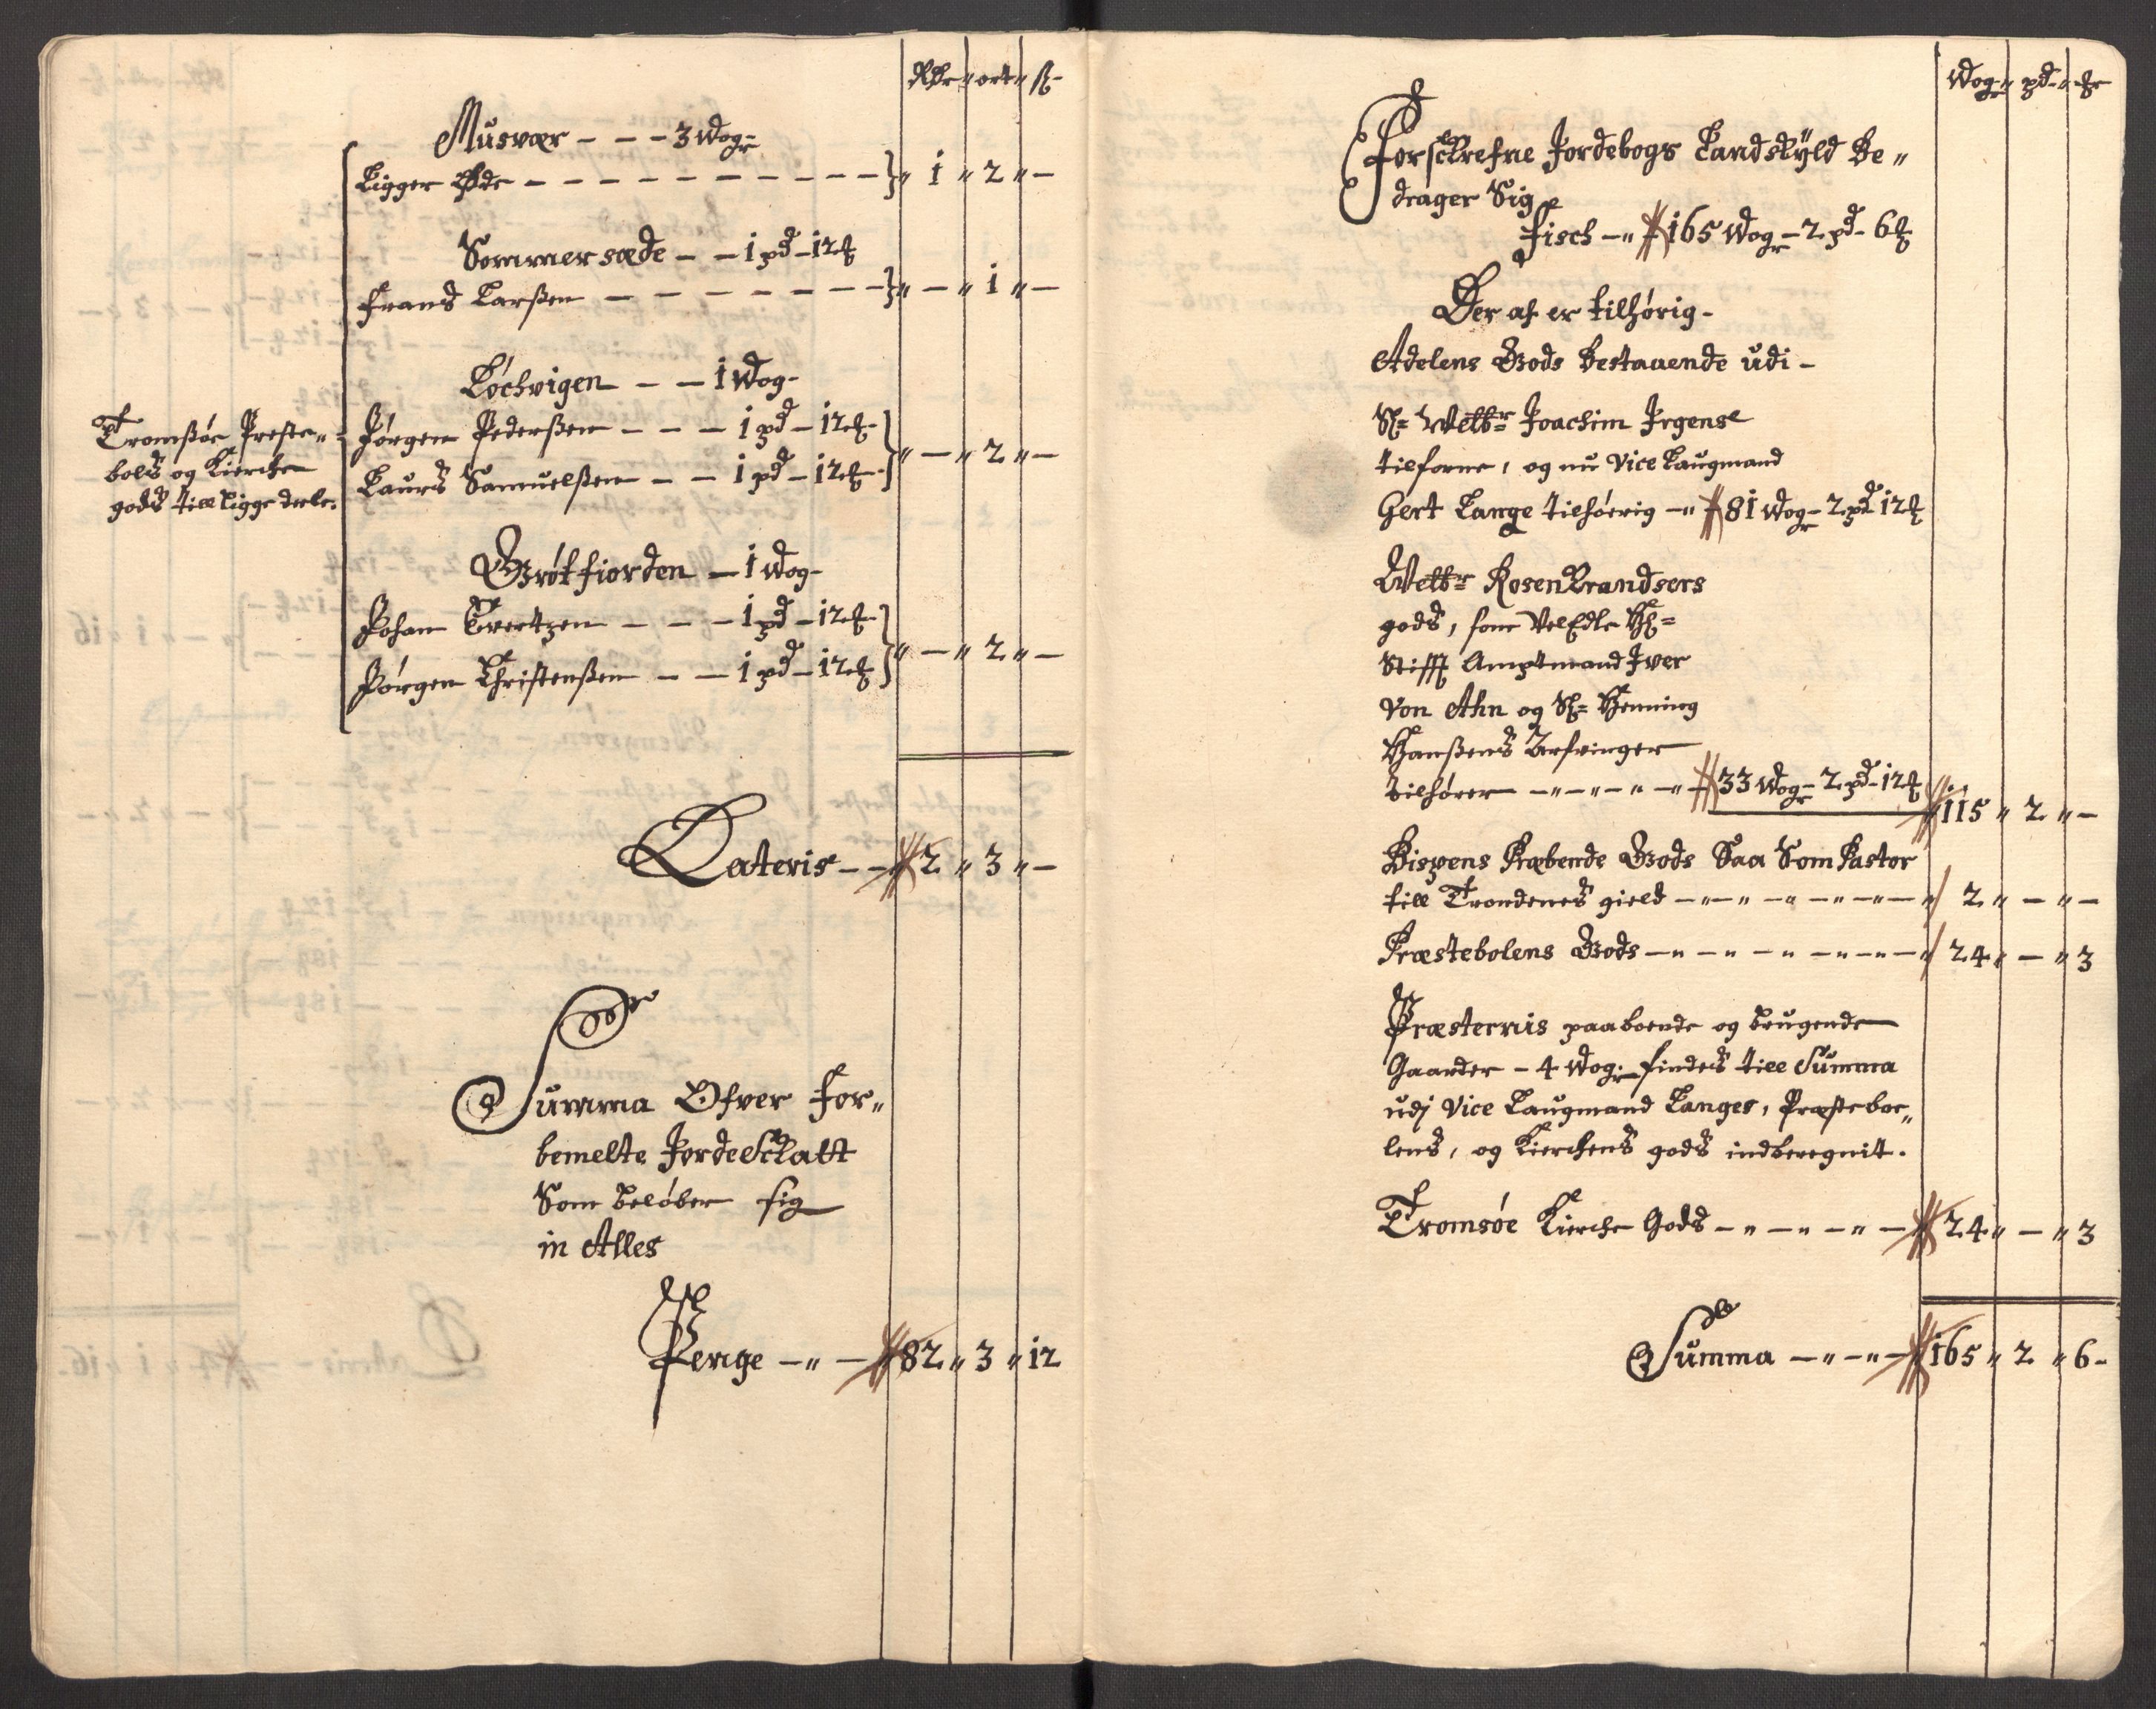 Rdr " ort " ß -
Musvær - - - 3 Wogr
Ligger Øde - - - - - - - - - - - - - } " 1 " 2 " -
Sommersæde - - 1 pd - 12 ℔
Frans Larßen - - - - - - - - - } " - " 1 " -
Løchvigen - - 1 Wog -
Tromßøe Præste=
bols og Kierche
gods till ligge deele.
Jørgen Pederßen - - - 1 pd - 12 ℔ -
Laurs Samuelßen - - - 1 pd - 12 ℔ - } " - " 2 " -
Grøtfiorden - 1 Wog -
Johan Evertzen - - - 1 pd - 12 ℔ -
Jørgen Christenßen - - - 1 pd - 12 ℔ } " - " 2 " -
Lateris - - 2 " 3 " -
Summa Ofver for"
bemelte JordeSckatt
Som beløber sig
in Alles
Penge - " - 82 " 3 " 12
Wogr " pd - " ℔r
Forschrefne Jordebogs Landskÿld Be"
drager Sig
fisch - " 165 Wogr - 2 pd - 6 ℔
Der af er tilhørig -
Adelens Gods bestaaende udi -
Sl= Welbr Joachim Irgens
tilforne, og nu Vice Laugmand
Gert Lange tilhøerig - " 81 Wogr - 2 pd 12 ℔
Welbr RosenBrandsers
gods, som VelEdle Hr=
Stifft Amptmand Iver
Von Ahn og Sl= Henning
Hanßens Arfvinger
tilhører - " - " - " - " - 33 Wogr - 2 pd - 12 ℔
115 " 2 " -
Bispens Præbende Gods Saa Som Pastor
till Trondenes gield - " - " - " - " - " - " 2 " - " -
Præstebolens Gods - " - " - " - " - " - " 24 " - " 3
Præsternis paaboende og brugende
Gaarder - 4 Wogr findes till Summa
udj Vice Laugmand Langes, Præsteboe"
lens, og Kierchens gods indberegnit.
Tromsøe Kierche Gods - " - " - " - 24 " - " 3
Summa - " - " - 165 " 2 " 6 -